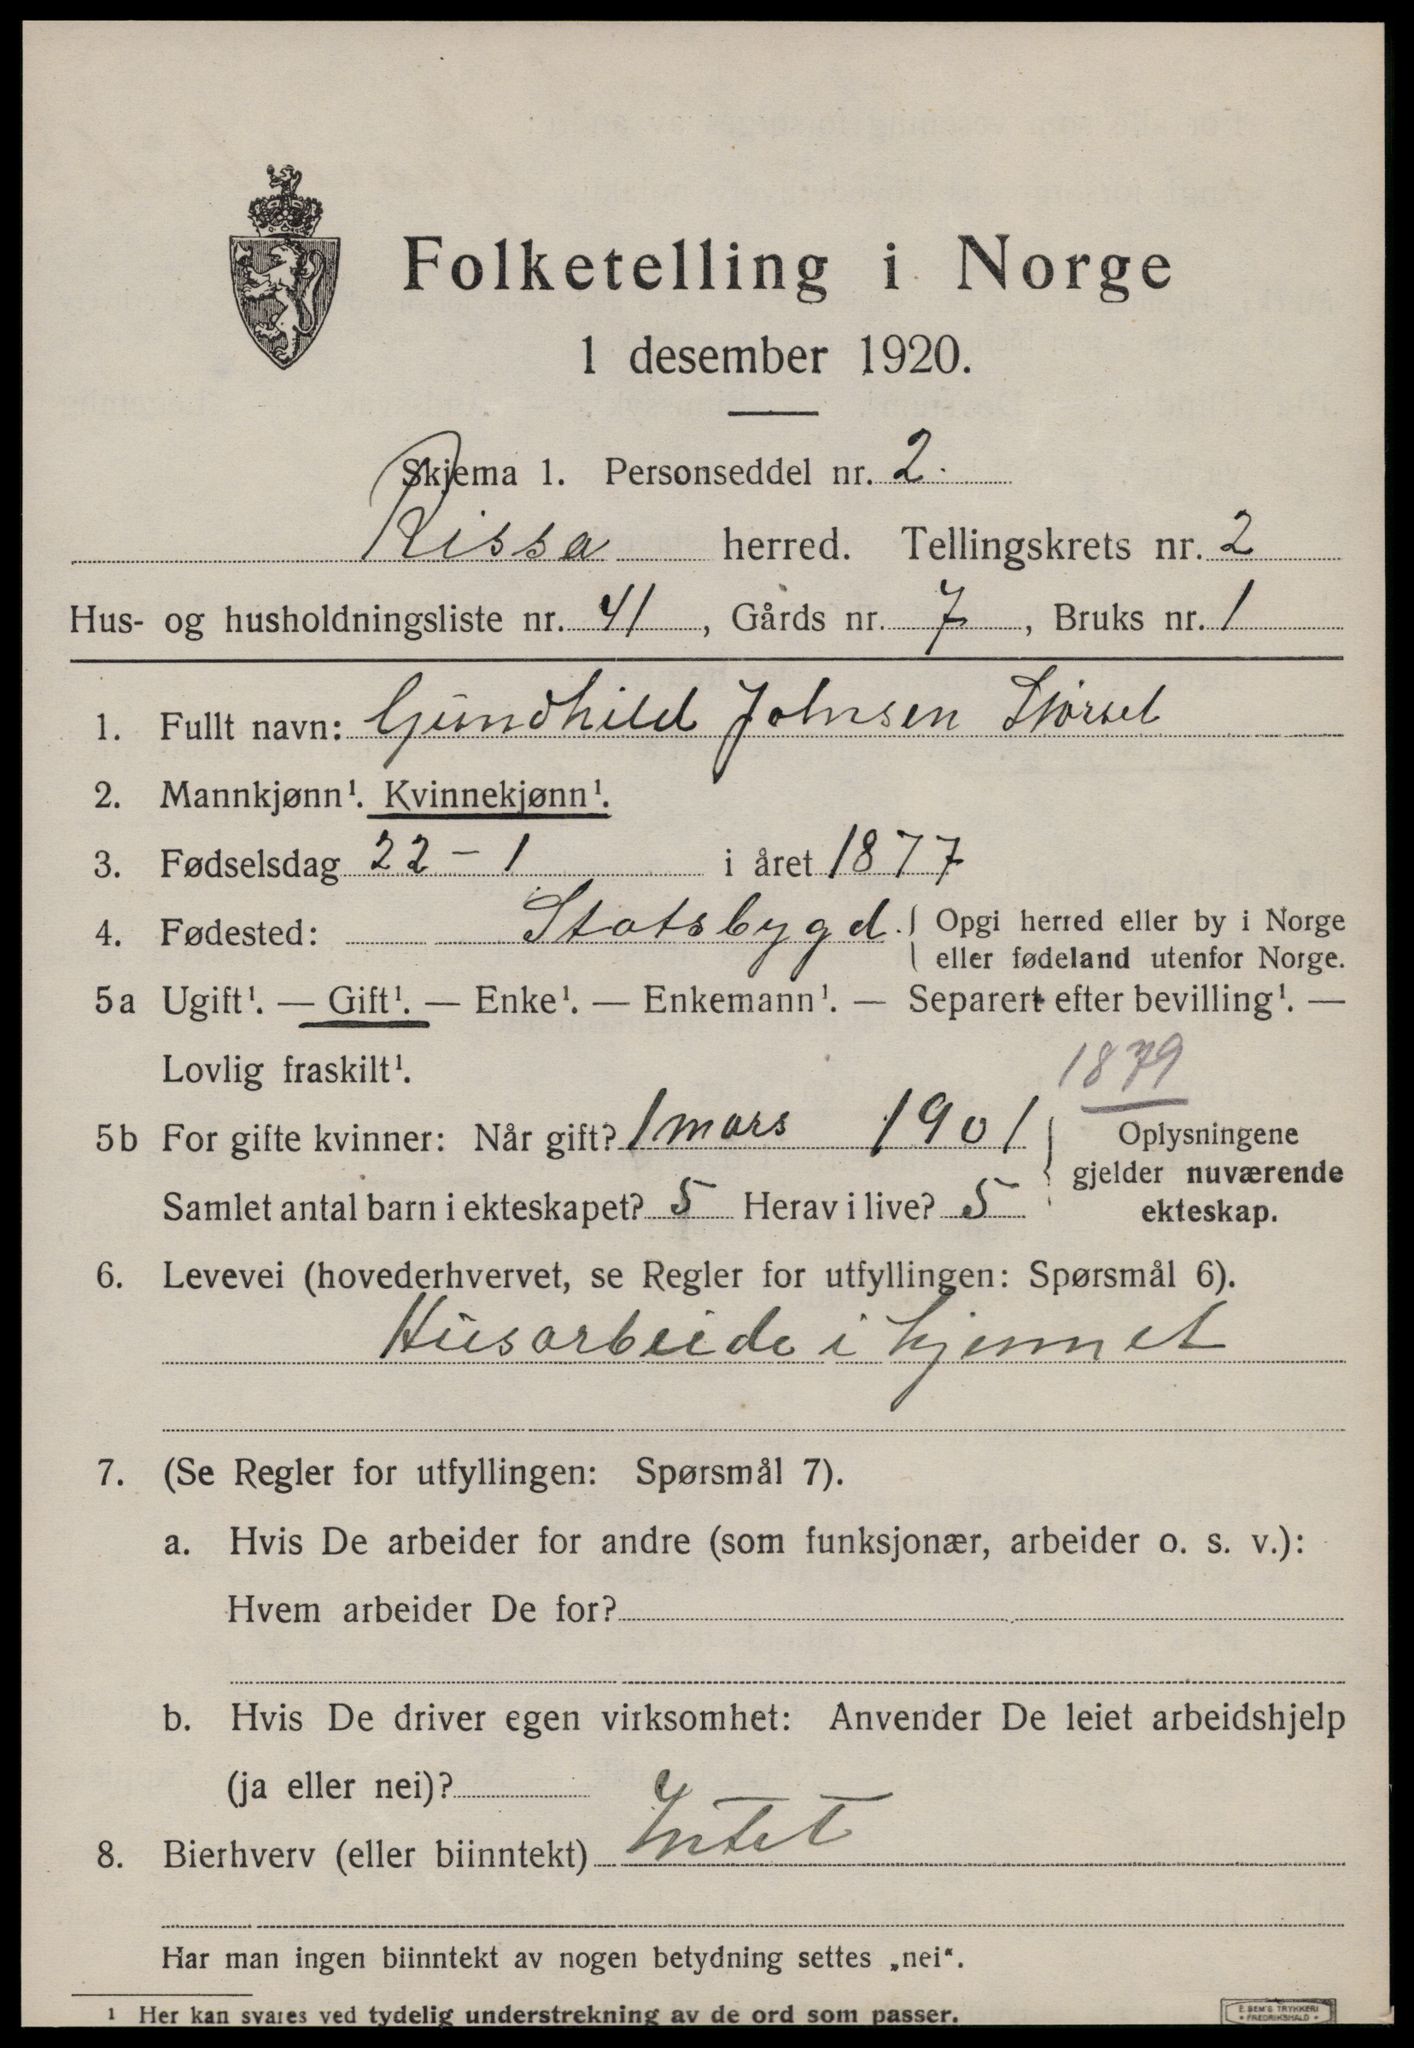 Folketelling i Norge
1 desember 1920.
Skjema 1. Personseddel nr. 2.
Rissa herred. Tellingskrets nr. 2
Hus- og husholdningsliste nr. 41, Gårds nr. 7, Bruks nr. 1
1. Fullt navn: Gundhild Johnsen
2. Mannkjønn¹. Kvinnekjønn¹.
3. Fødselsdag 22-1 i året 1877
4. Fødested: Statsbygd. { Opgi herred eller by i Norge
eller fødeland utenfor Norge.
5a Ugift¹. — Gift¹. — Enke¹. — Enkemann¹. — Separert efter bevilling¹. —
Lovlig fraskilt¹.
1879
5b For gifte kvinner: Når gift? 1 mars 1901
Samlet antal barn i ekteskapet? 5 Herav i live? 5
Oplysningene
gjelder nuværende
ekteskap.
6. Levevei (hovederhvervet, se Regler for utfyllingen: Spørsmål 6).
Husarbeide i hjemmet
7. (Se Regler for utfyllingen: Spørsmål 7).
a. Hvis De arbeider for andre (som funksjonær, arbeider o. s. v.):
Hvem arbeider De for?
b. Hvis De driver egen virksomhet: Anvender De leiet arbeidshjelp
(ja eller nei)?
8. Bierhverv (eller biinntekt) Intet
Har man ingen biinntekt av nogen betydning settes „nei“.
¹ Her kan svares ved tydelig understrekning av de ord som passer.
E. SEM'S TRYKKERI
FREDRIKSHALD